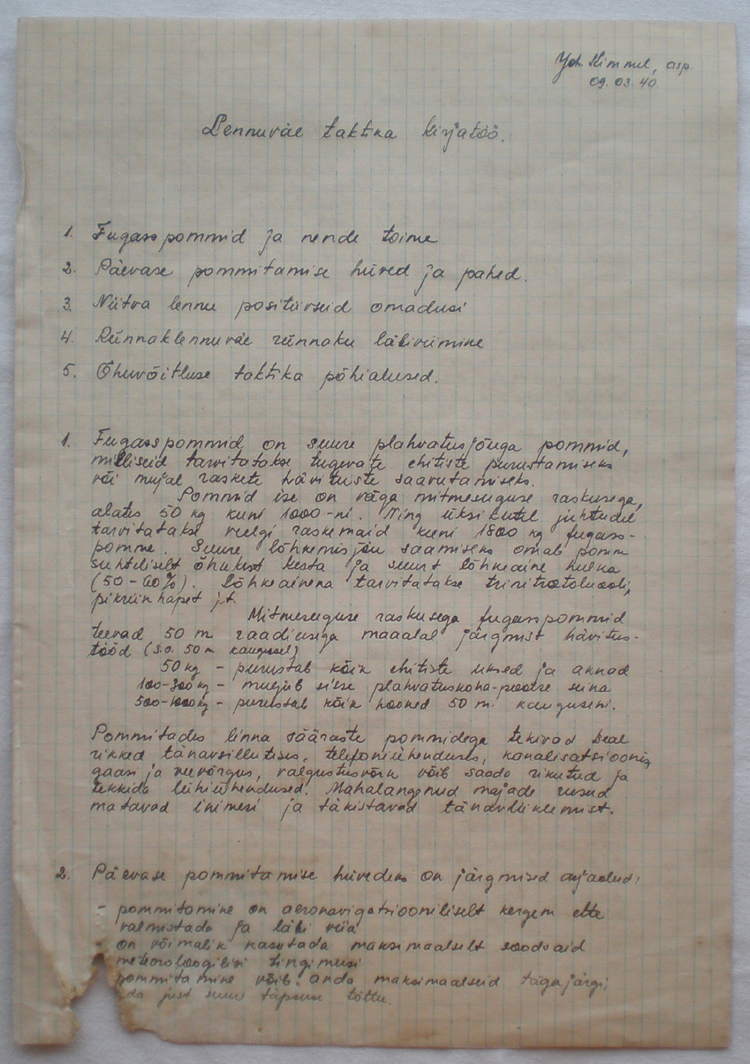 Joh. Kimmel, asp.
09. 03. 40
Lennuväe taktika kirjatöö.
1. Fugasspommid ja nende toime
2. Päevase pommitamise hüved ja pahed.
3. Niitva lennu positiivseid omadusi
4. Ründaklennuväe ründaku läbiviimine
5. Õhuvõitluse taktika põhialused.
1. Fugasspommid on suure plahvatusjõuga pommid,
milliseid tarvitatakse tugevate ehitiste purustamiseks
või mujal raskete hävituste saavutamiseks.
Pommid ise on väga mitmesuguse raskusega,
alates 50 kg kuni 1000-ni. Ning üksikutel juhtudel
tarvitatakse veelgi raskemaid kuni 1800 kg fugass-
pomme. Suure lõhkemisjõu saamiseks omab pomm
suhteliselt õhukest kesta ja suurt lõhkeaine hulka
(50-60%). Lõhkeainena tarvitatakse trinitrotoluooli,
pikriinhapet jt.
Mitmesuguse raskusega fugasspommid
teevad 50 m raadiusega maaalal järgmist hävitus-
tööd (s.o. 50 m kaugusel)
50 kg - purustab kõik ehitiste uksed ja aknad
100-300 kg - muljub sisse plahvatuskoha-poolse seina
500-1000 kg - purustab kõik hooned 50 m kauguseni.
Pommitades linna sääraste pommidega tekivad seal
rikked tänavsillutises, telefoniühenduses, kanalisatsioonis,
gaasi ja veevõrgus, valgustusvõrk võib saada rikutud ja
tekkida lühiühendused. Mahalangenud majade rusud
matavad inimesi ja takistavad tänavliiklemist.
2. Päevase pommitamise hüvedeks on järgmised asjaolud:
- pommitamine on aeronavigatsiooniliselt kergem ette
valmistada ja läbi viia
- on võimalik kasutada maksimaalselt soodsaid
meteoroloogilisi tingimusi
pommitamine võib anda maksimaalseid tagajärgi
just suure täpsuse tõttu.